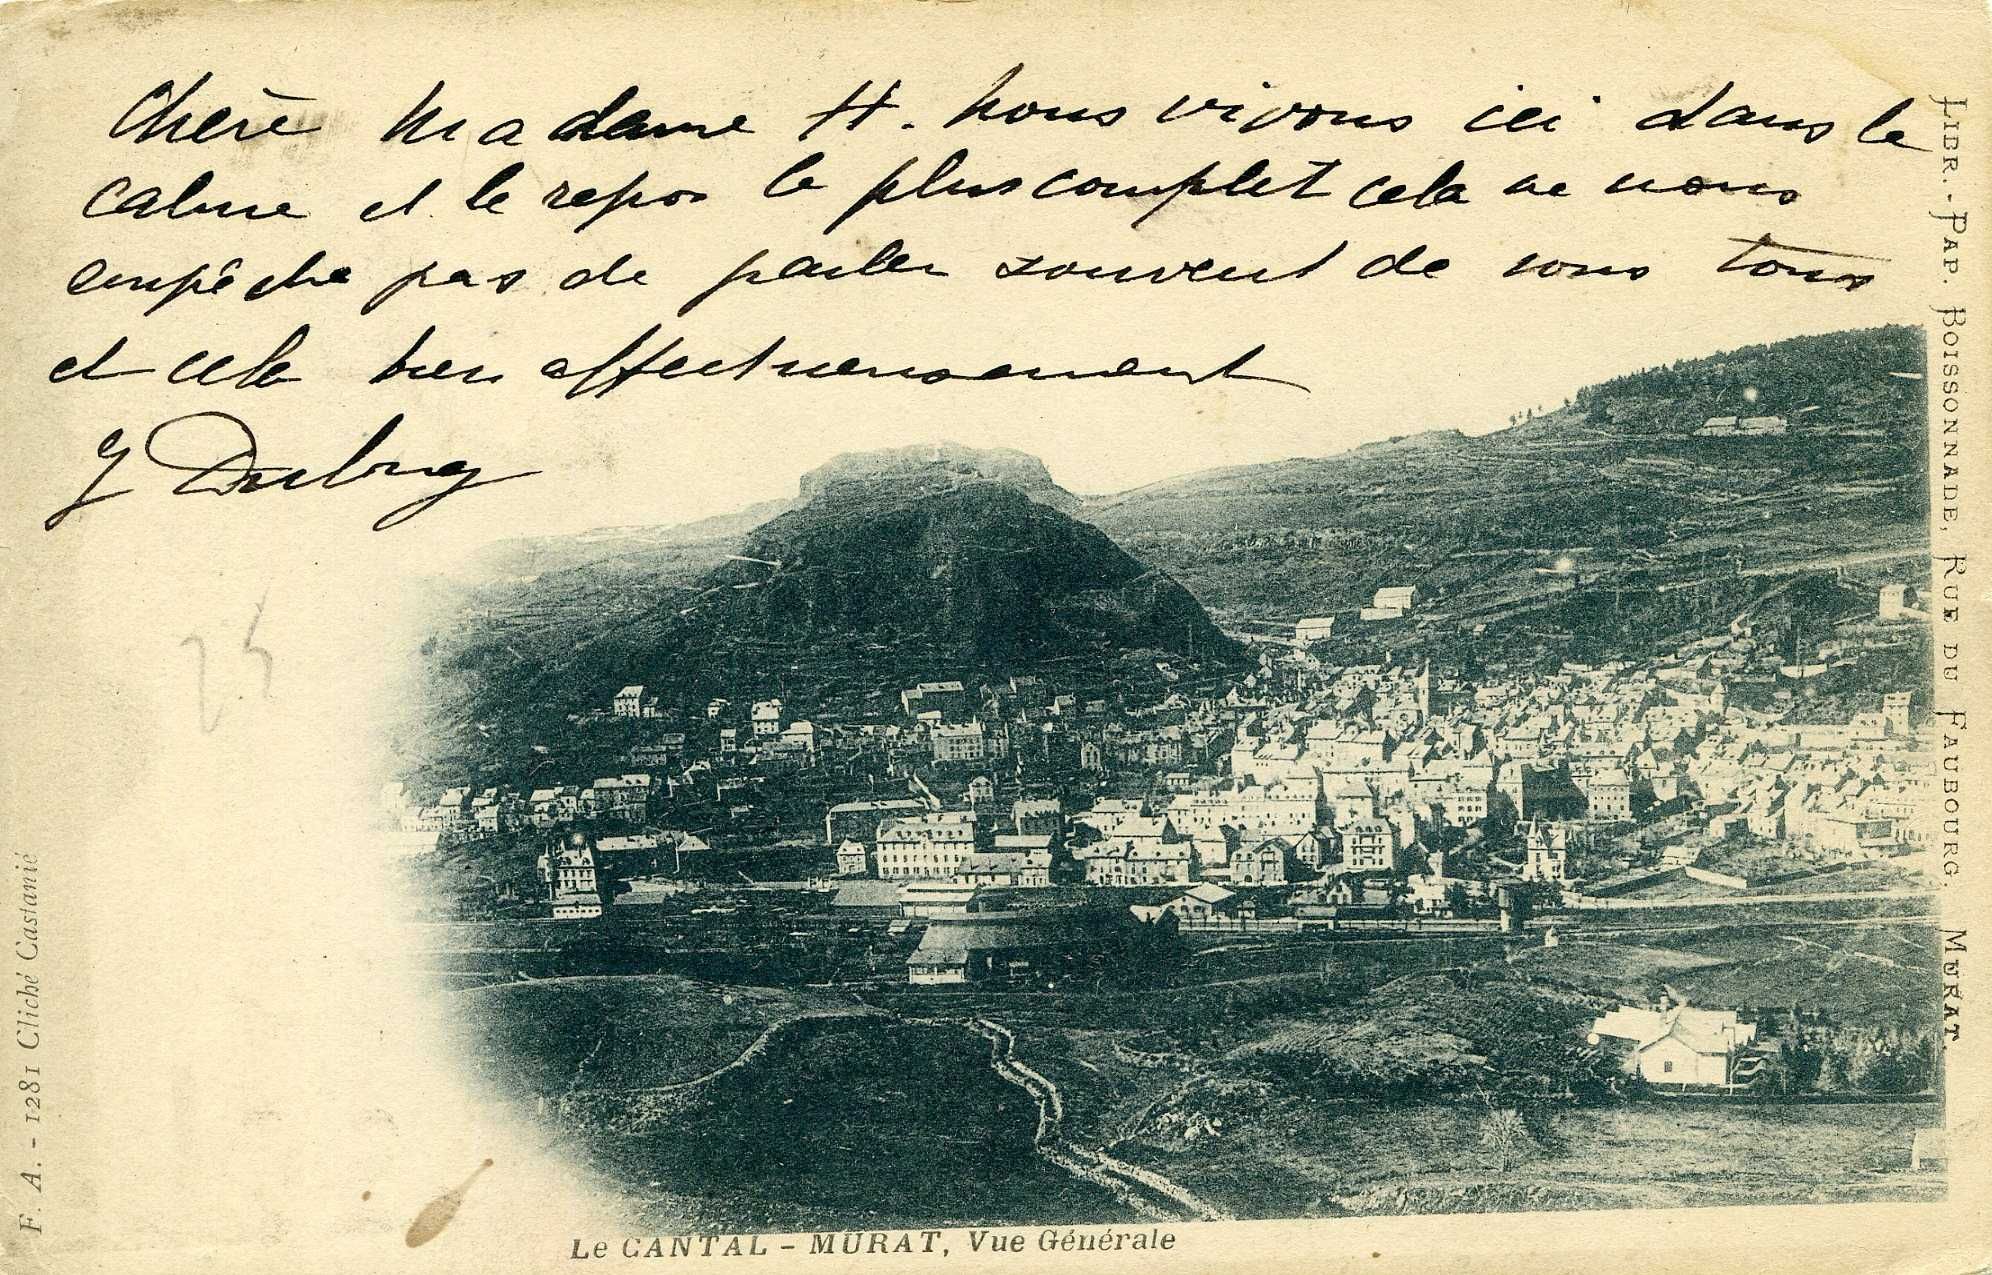 Chère Madame H. nous vivons ici dans le
calme et le repos le plus complet cela ne nous
empêche pas de parler souvent de vous tous
et cela bien affectueusement
J Dubuy
25
LIBR.-PAP. BOISSONNADE, RUE DU FAUBOURG. MURAT.
F. A. - 1281 Cliché Castanié
Le CANTAL - MURAT, Vue Générale